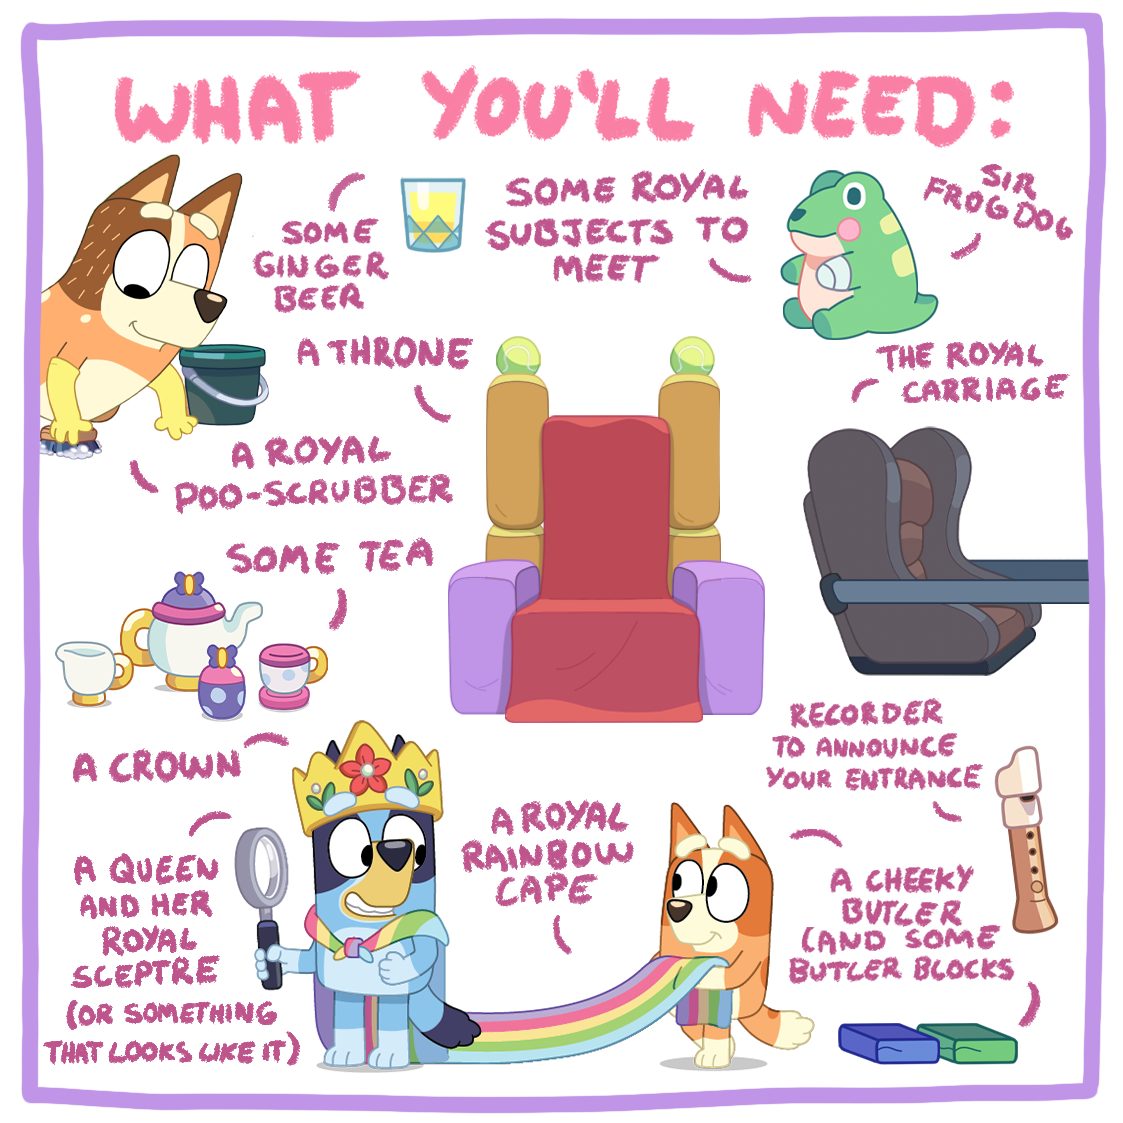 WHAT YOU'LL NEED:
SOME
GINGER
BEER
SOME ROYAL
SUBJECTS TO
MEET
SIR
FROGDOG
A THRONE
THE ROYAL
CARRIAGE
A ROYAL
POO-SCRUBBER
SOME TEA
RECORDER
TO ANNOUNCE
YOUR ENTRANCE
A CROWN
A ROYAL
RAINBOW
CAPE
A QUEEN
AND HER
ROYAL
SCEPTRE
(OR SOMETHING
THAT LOOKS LIKE IT)
A CHEEKY
BUTLER
(AND SOME
BUTLER BLOCKS